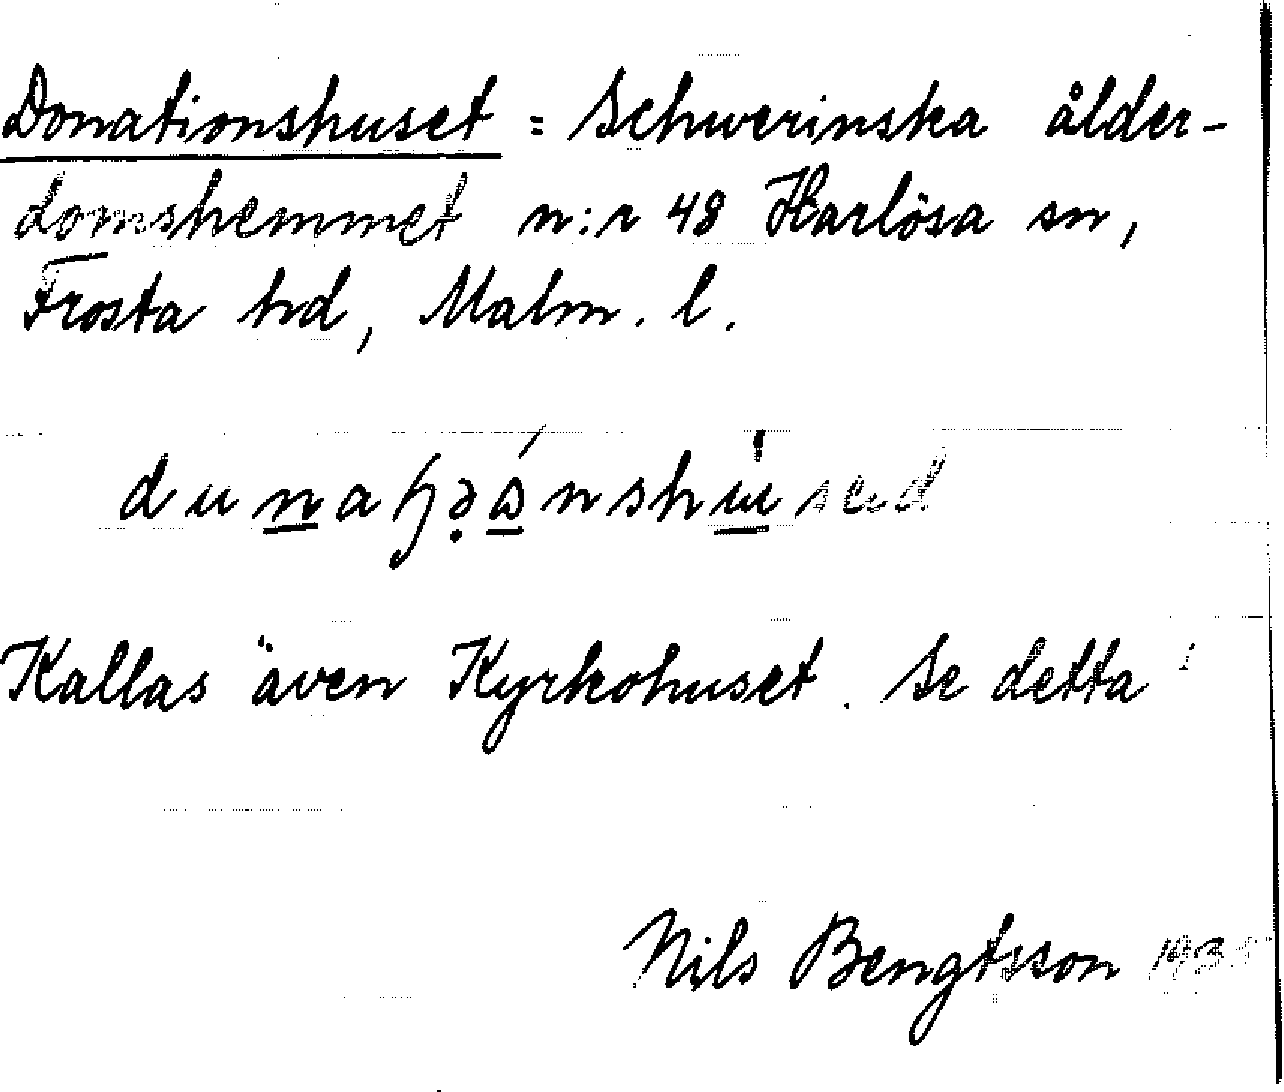 Donationshuset = Schwerinska ålder-
domshemmet n:r 48 Harlösa sn,
Frosta hd, Malm. l.
Kallas även Kyrkohuset. Se detta!
Nils Bengtsson